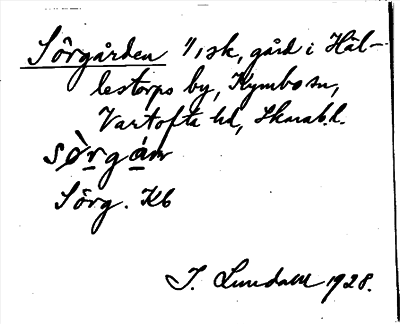 Sörgården 1/1 sk, gård i Häl-
lestorps by, Kymbo sn,
Vartofta hd, Skarab.l.
sö̀rgáɳ
Sörg. Kb
J. Lundahl 1928.